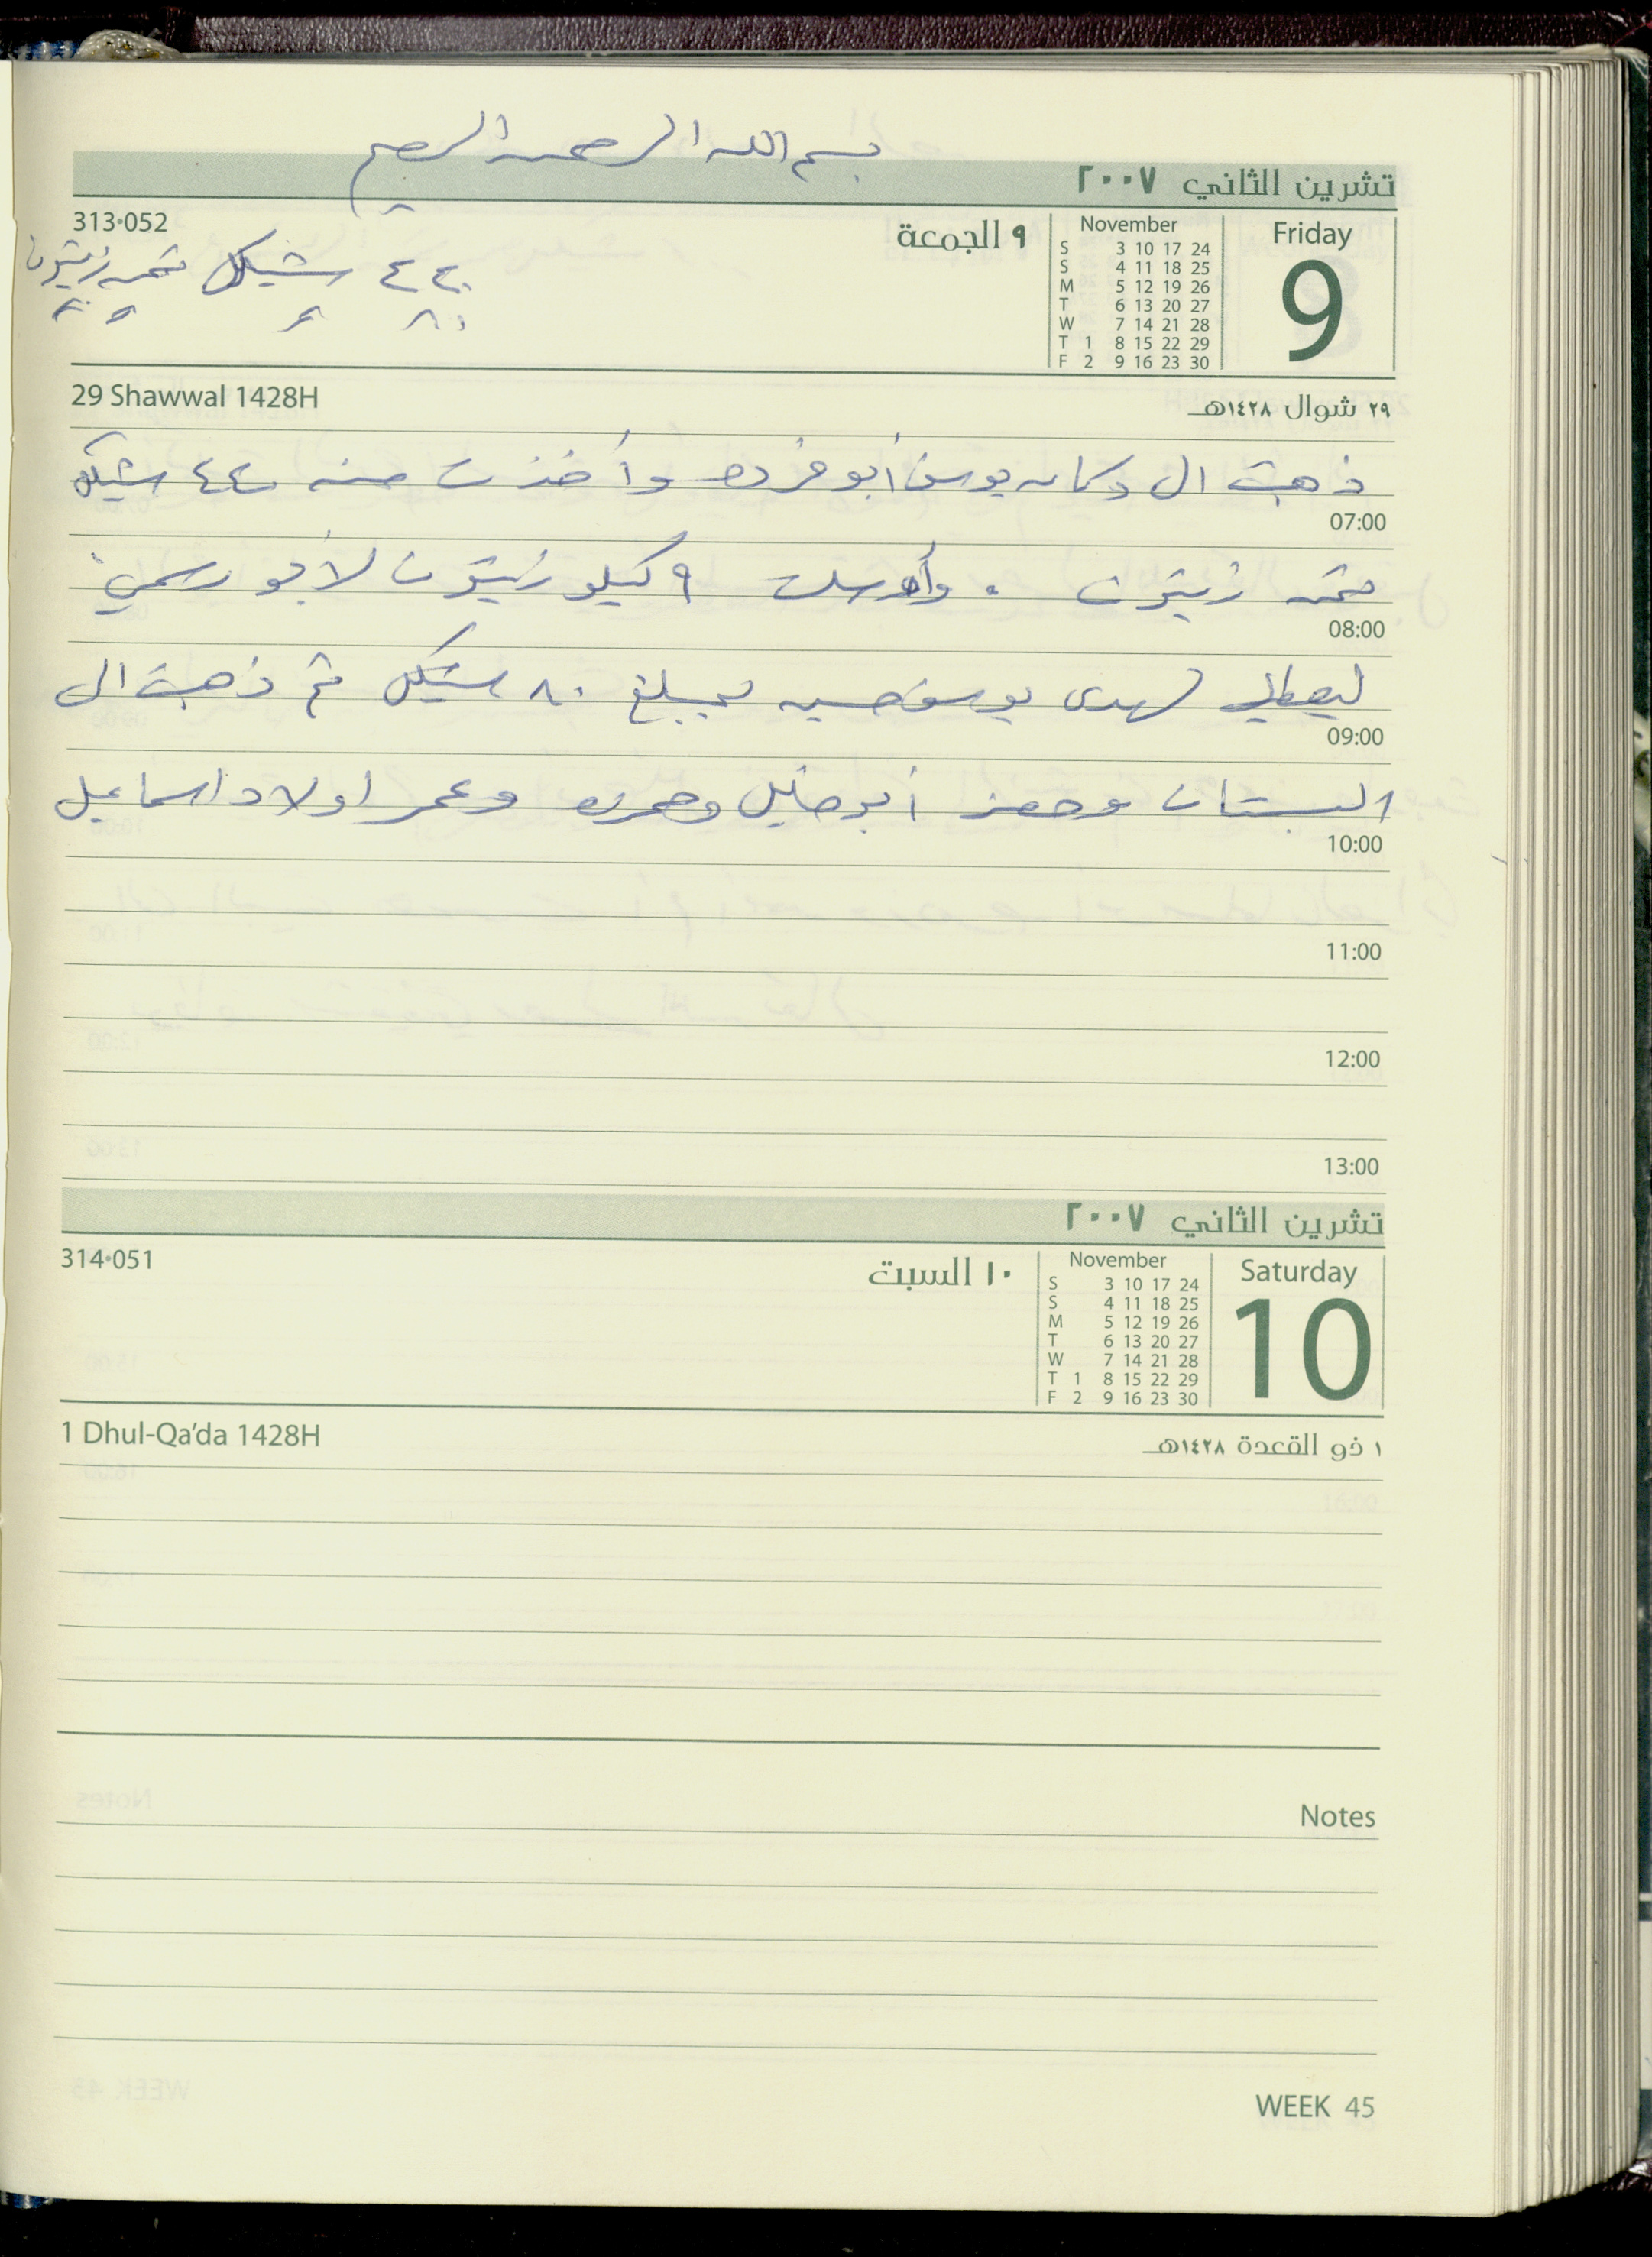 بسم الله الرحمن الرحيم
تشرين الثاني ٢٠٠٧
313·052
٩ الجمعة
November
Friday
9
S 3 10 17 24
S 4 11 18 25
M 5 12 19 26
T 6 13 20 27
W 7 14 21 28
T 1 8 15 22 29
F 2 9 16 23 30
شيكل ثمن زيتون
٨٠
29 Shawwal 1428H
٢٩ شوال ١٤٢٨هـ
ذهبت الى دكان يوسف أبو فرده وأخذت منه ٤٤٠ شيكل
07:00
ثمن زيتون . وأرسلت ٩ كيلو زيتون لأبو رسمي
08:00
ليعطي لهدى يوسف حسين بمبلغ ٨٠ شيكل ثم ذهبت الى
09:00
البستان وحضر أبو خليل وحمزه وعمر اولاد اسماعيل
10:00
11:00
12:00
13:00
تشرين الثاني ٢٠٠٧
314·051
١٠ السبت
November
Saturday
10
S 3 10 17 24
S 4 11 18 25
M 5 12 19 26
T 6 13 20 27
W 7 14 21 28
T 1 8 15 22 29
F 2 9 16 23 30
1 Dhul-Qa’da 1428H
١ ذو القعدة ١٤٢٨هـ
Notes
WEEK 45